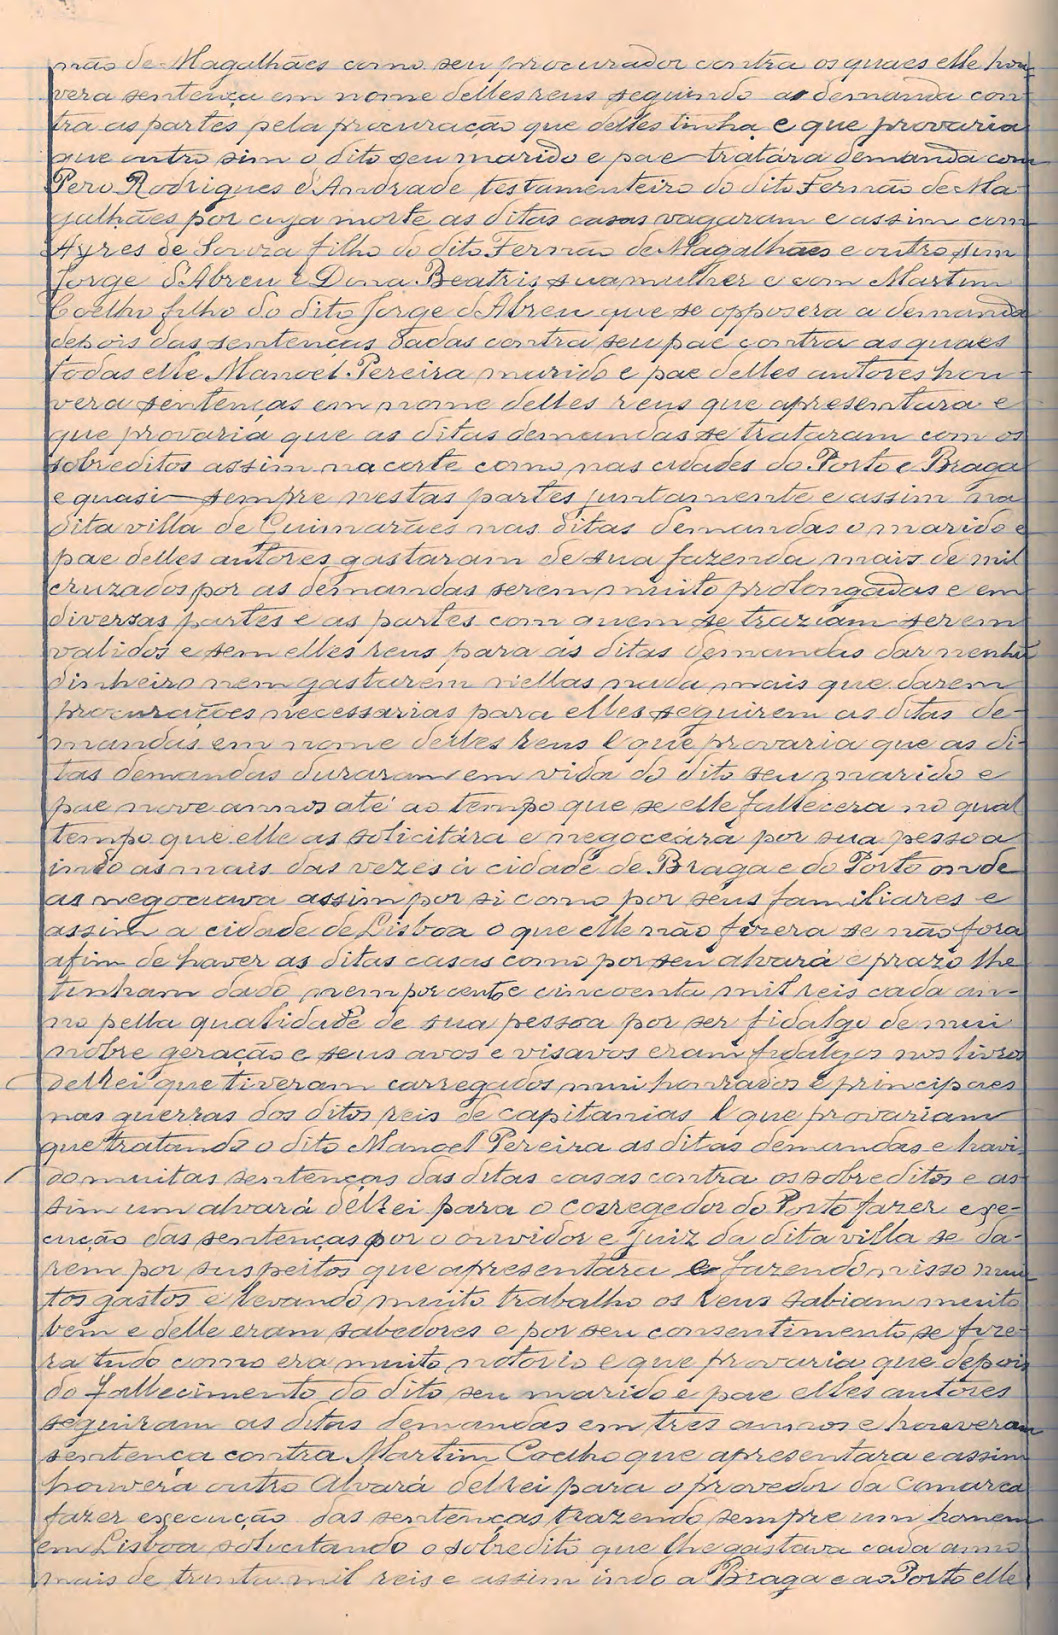 não de Magalhães como seu procurador contra os quaes elle hou-
vera sentença em nome delles reus seguindo as demanda con-
tra as partes pela procuração que delles tinha e que provaria
que outro sim o dito seu marido e pae tratára demanda com
Pero Rodrigues d'Andrade testamenteiro do dito Fernão de Ma-
galhães por cuja morte as ditas casas vagaram e assim com
Ayres de Souza filho do dito Fernão de Magalhães e outro sim
Jorge d'Abreu e Dona Beatris sua mulher e com Martim
Coelho filho do dito Jorge d'Abreu que se opposera a demanda
depois das sentenças dadas contra seu pae contra as quaes
todas elle Manoel Pereira marido e pae delles autores hou-
vera sentenças em nome delles reus que apresentara e
que provaria que as ditas demandas se trataram com os
sobreditos assim na corte como nas cidades do Porto e Braga
e quasi sempre nestas partes juntamente e assim na
dita villa de Guimarães nas ditas demandas o marido e
pae delles autores gastaram de sua fazenda mais de mil
cruzados por as demandas serem muito prolongadas e em
diversas partes e as partes com quem se traziam serem
validos e sem elles reus para as ditas demandas dar nenhũ
dinheiro nem gastarem nellas nada mais que darem
procurações necessarias para elles seguirem as ditas de-
mandas em nome delles reus e que provaria que as di-
tas demandas duraram em vida do dito seu marido e
pae nove annos até ao tempo que se elle fallecera no qual
tempo que elle as solicitára e negoceára por sua pessoa
indo as mais das vezes á cidade de Braga e do Porto onde
as negociava assim por si como por seus familiares e
assim a cidade de Lisboa o que elle não fizera se não fora
afim de haver as ditas casas como por seu alvará e prazo lhe
tinham dado nem por cento e cincoenta mil reis cada an-
no pella qualidade de sua pessoa por ser fidalgo de mui
nobre geração e seus avos e visavos eram fidalgos nos livros
delRei que tiveram carregados mui honrados e principaes
nas guerras dos ditos reis de capitanias e que provariam
que tratando o dito Manoel Pereira as ditas demandas e havi-
do muitas sentenças das ditas casas contra os sobreditos e as-
sim um alvará delRei para o corregedor do Porto fazer exe-
cução das sentenças por o ouvidor e Juiz da dita villa se da-
rem por suspeitos que apresentara e fazendo nisso mui-
tos gastos e levando muito trabalho os Reus sabiam muito
bem e delle eram sabedores e por seu consentimento se fize-
ra tudo como era muito notorio e que provaria que depois
do fallecimento do dito seu marido e pae elles autores
seguiram as ditas demandas em tres annos e houveram
sentença contra Martim Coelho que apresentara e assim
houvera outro Alvará delRei para o provedor da Comarca
fazer execução das sentenças trazendo sempre um homem
em Lisboa solicitando o sobredito que lhe gastava cada anno
mais de trinta mil reis e assim indo a Braga e ao Porto elle